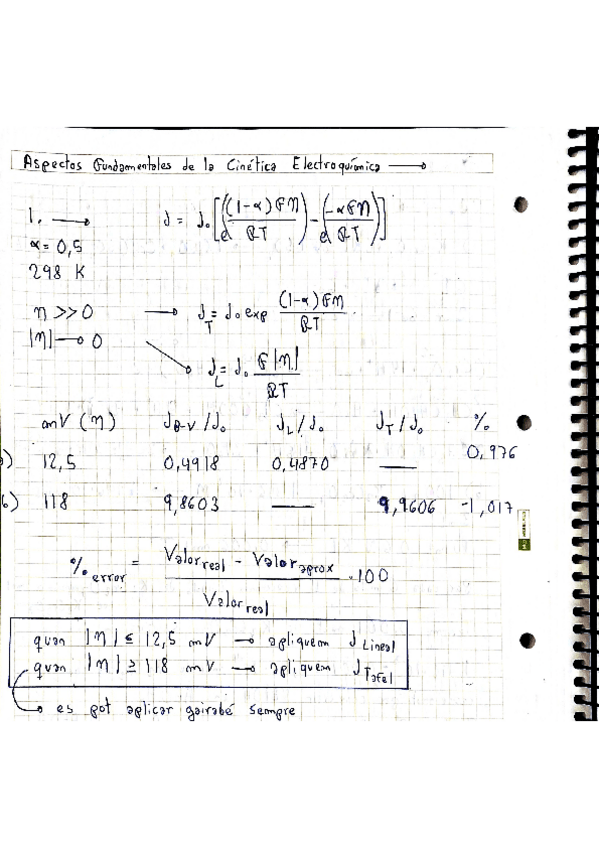 Aspectos Fundamentales de la Cinética Electroquímica →
1. → j = j₀ [e((1-α)Fη / RT) - e(-αFη / RT)]
α = 0,5
298 K
η >> 0 → j_T = j₀ exp (1-α)Fη / RT
|η| → 0 → j_L = j₀ F|η| / RT
mV (η) j_B-V / j₀ j_L / j₀ j_T / j₀ %
a) 12,5 0,4918 0,4870 — 0,976
b) 118 9,8603 — 9,9606 -1,017
%error = (Valor real - Valor aprox / Valor real) · 100
quan |η| ≤ 12,5 mV → apliquem j Lineal
quan |η| ≥ 118 mV → apliquem j Tafel
→ es pot aplicar gairabé sempre